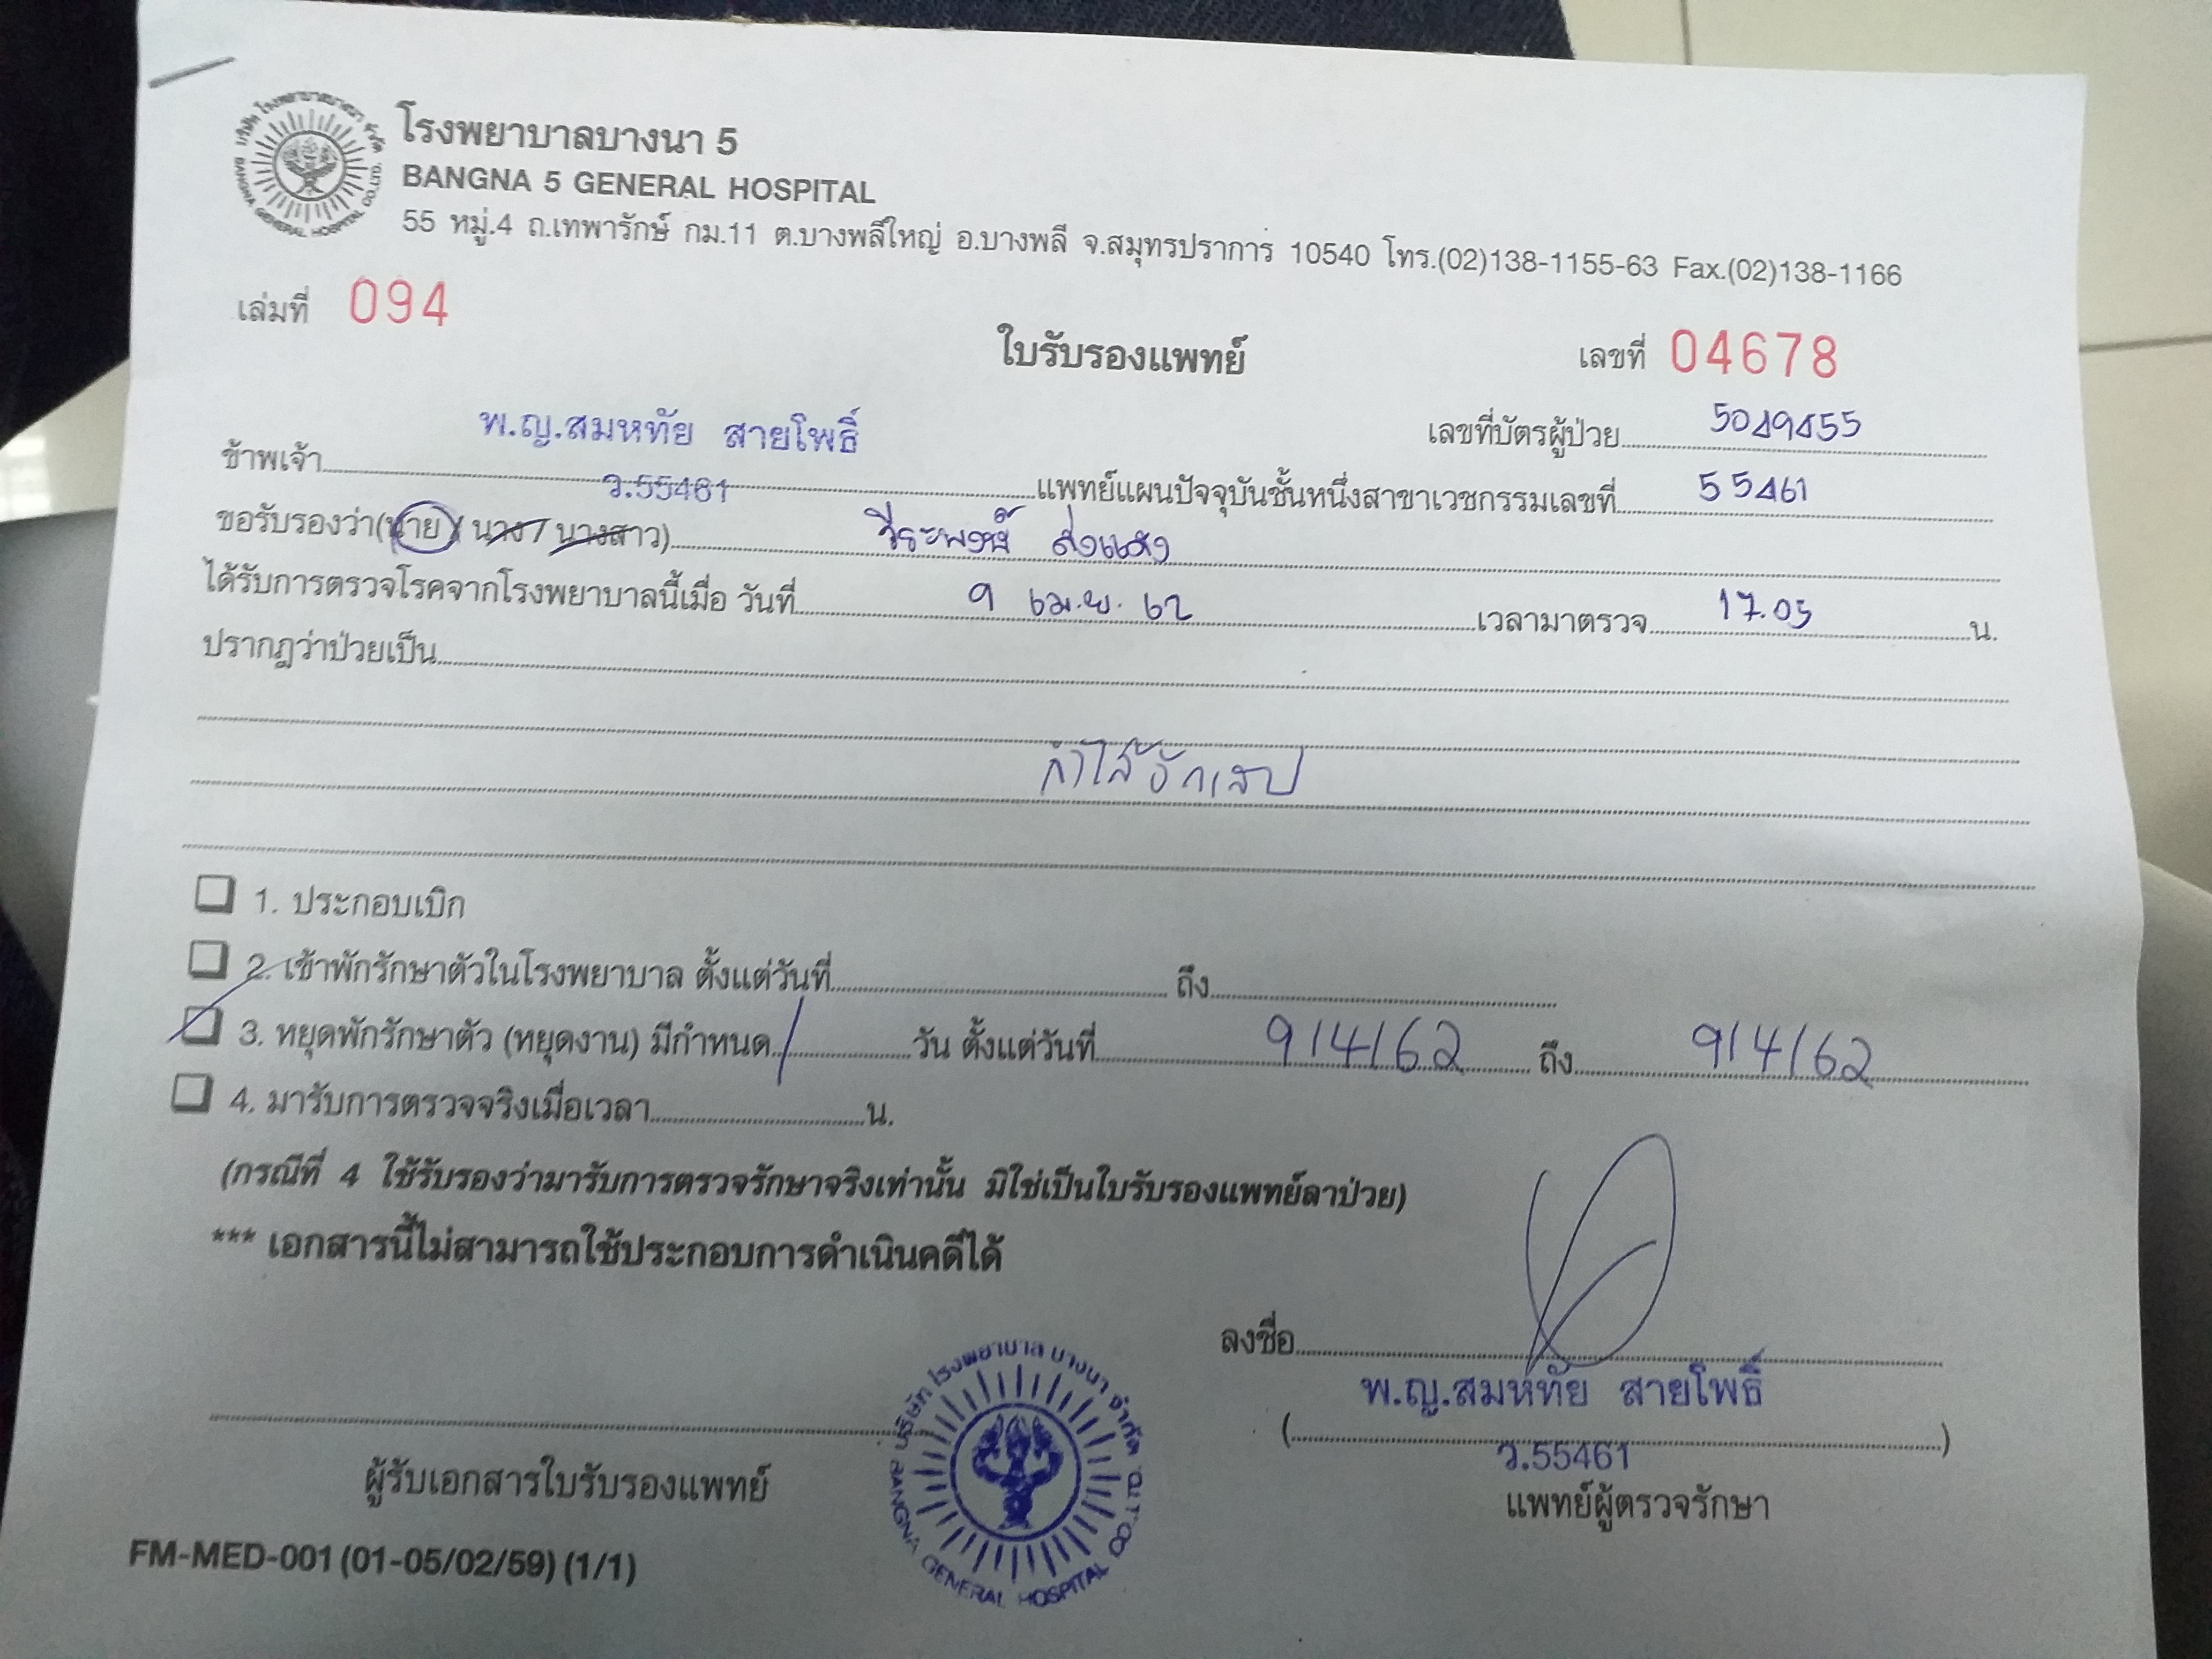 โรงพยาบาลบางนา 5
BANGNA 5 GENERAL HOSPITAL
55 หมู่.4 ถ.เทพารักษ์ กม.11 ต.บางพลีใหญ่ อ.บางพลี จ.สมุทรปราการ 10540 โทร.(02)138-1155-63 Fax.(02)138-1166
บริษัท โรงพยาบาลบางนา จำกัด BANGNA GENERAL HOSPITAL CO.,LTD.
เล่มที่ 094
ใบรับรองแพทย์
เลขที่ 04678
เลขที่บัตรผู้ป่วย 5049455
ข้าพเจ้า พ.ญ.สมหทัย สายโพธิ์ ว.55461 แพทย์แผนปัจจุบันชั้นหนึ่งสาขาเวชกรรมเลขที่ 55461
ขอรับรองว่า(นาย / นาง / นางสาว) วีระพงษ์
ได้รับการตรวจโรคจากโรงพยาบาลนี้เมื่อ วันที่ 9 เม.ย. 62 เวลามาตรวจ 17.05 น.
ปรากฎว่าป่วยเป็น
ลำไส้อักเสบ
1. ประกอบเบิก
2. เข้าพักรักษาตัวในโรงพยาบาล ตั้งแต่วันที่ ถึง
3. หยุดพักรักษาตัว (หยุดงาน) มีกำหนด 1 วัน ตั้งแต่วันที่ 9/4/62 ถึง 9/4/62
4. มารับการตรวจจริงเมื่อเวลา น.
(กรณีที่ 4 ใช้รับรองว่ามารับการตรวจรักษาจริงเท่านั้น มิใช่เป็นใบรับรองแพทย์ลาป่วย)
*** เอกสารนี้ไม่สามารถใช้ประกอบการดำเนินคดีได้
ลงชื่อ
พ.ญ.สมหทัย สายโพธิ์
( )
ว.55461
แพทย์ผู้ตรวจรักษา
ผู้รับเอกสารใบรับรองแพทย์
บริษัท โรงพยาบาล บางนา จำกัด BANGNA GENERAL HOSPITAL CO.,LTD.
FM-MED-001 (01-05/02/59) (1/1)